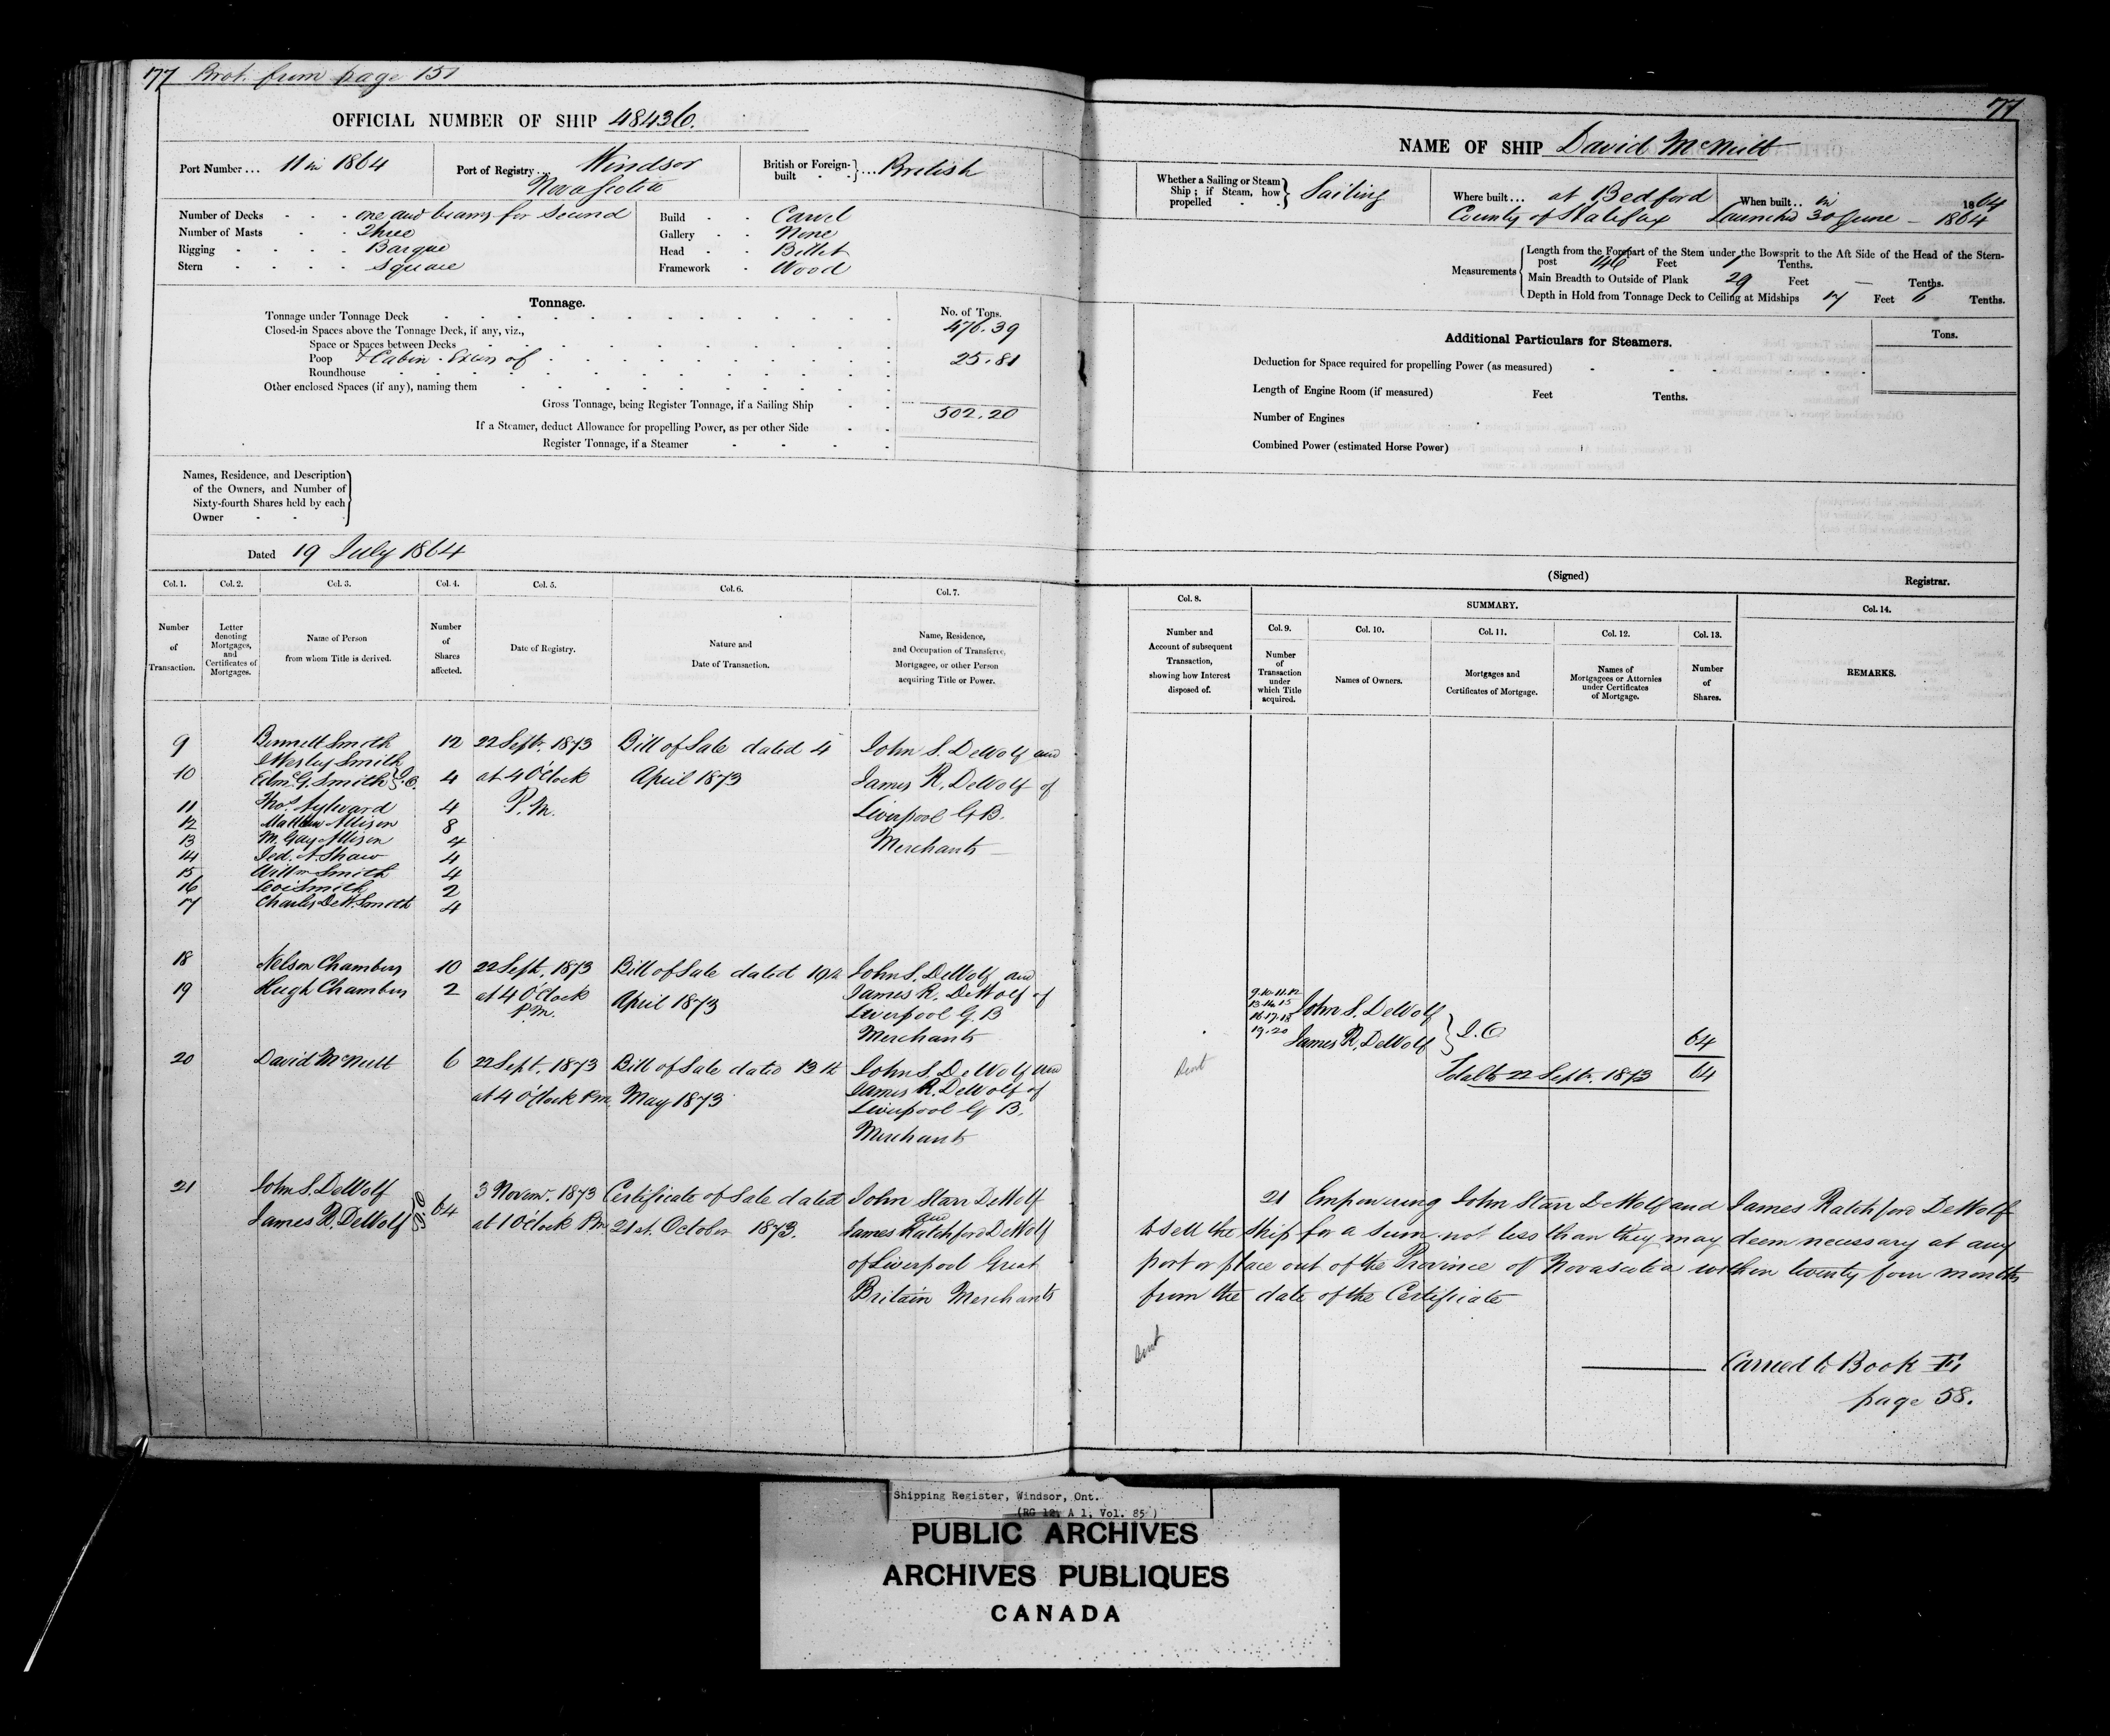 77 Brot. from page 151
OFFICIAL NUMBER OF SHIP 48436.
Port Number ... 11 in 1864
Port of Registry ... Windsor
Nova Scotia
British or Foreign-built ... British
Number of Decks - - - one and beams for second
Number of Masts - - Three
Rigging - - - - Barque
Stern - - - - Square
Build - - Carvel
Gallery - - None
Head - - Billet
Framework - Wood
Tonnage.
No. of Tons.
Tonnage under Tonnage Deck 476.39
Closed-in Spaces above the Tonnage Deck, if any, viz.,
Space or Spaces between Decks
Poop & Cabin - Excess of 25.81
Roundhouse
Other enclosed Spaces (if any), naming them
Gross Tonnage, being Register Tonnage, if a Sailing Ship 502.20
If a Steamer, deduct Allowance for propelling Power, as per other Side
Register Tonnage, if a Steamer
Names, Residence, and Description
of the Owners, and Number of
Sixty-fourth Shares held by each
Owner
Dated 19 July 1864
Col. 1. Col. 2. Col. 3. Col. 4. Col. 5. Col. 6. Col. 7.
Number of Transaction.
Letter denoting Mortgages, and Certificates of Mortgages.
Name of Person from whom Title is derived.
Number of Shares affected.
Date of Registry.
Nature and Date of Transaction.
Name, Residence, and Occupation of Transferee, Mortgagee, or other Person acquiring Title or Power.
9 Bennett Smith 12 22 Sept. 1873 Bill of Sale dated 4 John S. DeWolf and
J Wesley Smith
10 Edm. G. Smith } J.O. 4 at 4 O'Clock April 1873 James R. DeWolf of
11 Thos. Aylward 4 P.M. Liverpool G.B.
12 Matthew Allison 8
13 M. Gay Allison 4 Merchants
14 Jed. A. Shaw 4
15 Willm Smith 4
16 Levi Smith 2
17 Charles DeW. Smith 4
18 Nelson Chambers 10 22 Sept. 1873 Bill of Sale dated 19th John S. DeWolf and
19 Hugh Chambers 2 at 4 O'Clock April 1873 James R. DeWolf of
P.M. Liverpool G.B
Merchants
20 David McNutt 6 22 Sept. 1873 Bill of Sale dated 13th John S. DeWolf and
at 4 O'Clock Pm. May 1873 James R. DeWolf of
Liverpool G B.
Merchants
21 John S. DeWolf J.O 64 3 Novemr. 1873 Certificate of Sale dated John Starr DeWolf
and
James R. DeWolf at 1 O'Clock Pm 21st. October 1873. James Ratchford DeWolf
of Liverpool Great
Britain Merchants
77
NAME OF SHIP David McNutt
Whether a Sailing or Steam Ship; if Steam, how propelled - Sailing
Where built ... at Bedford
County of Halifax
When built .. in 1864
Launched 30 June - 1864
Measurements
Length from the Forepart of the Stem under the Bowsprit to the Aft Side of the Head of the Stern-
post 146 Feet 1 Tenths.
Main Breadth to Outside of Plank 29 Feet — Tenths.
Depth in Hold from Tonnage Deck to Ceiling at Midships 17 Feet 6 Tenths.
Additional Particulars for Steamers.
Tons.
Deduction for Space required for propelling Power (as measured)
Length of Engine Room (if measured) Feet Tenths.
Number of Engines
Combined Power (estimated Horse Power)
(Signed) Registrar.
Col. 8. SUMMARY. Col. 14.
Col. 9. Col. 10. Col. 11. Col. 12. Col. 13.
Number and Account of subsequent Transaction, showing how Interest disposed of.
Number of Transaction under which Title acquired.
Names of Owners.
Mortgages and Certificates of Mortgage.
Names of Mortgagees or Attornies under Certificates of Mortgage.
Number of Shares.
REMARKS.
9.10.11.12
13.14.15
16.17.18
19.20
John S. DeWolf
James R. DeWolf } J.O 64
Sent
Total to 22 Septr. 1873 64
21 Empowering John Starr DeWolf and James Ratchford DeWolf
to sell the ship for a sum not less than they may deem necessary at any
port or place out of the Province of Nova Scotia within twenty four months
from the date of the Certificate
Sent
Carried to Book
page 58.
Shipping Register, Windsor, Ont.
(RG 12, A 1, Vol. 85 )
PUBLIC ARCHIVES
ARCHIVES PUBLIQUES
CANADA